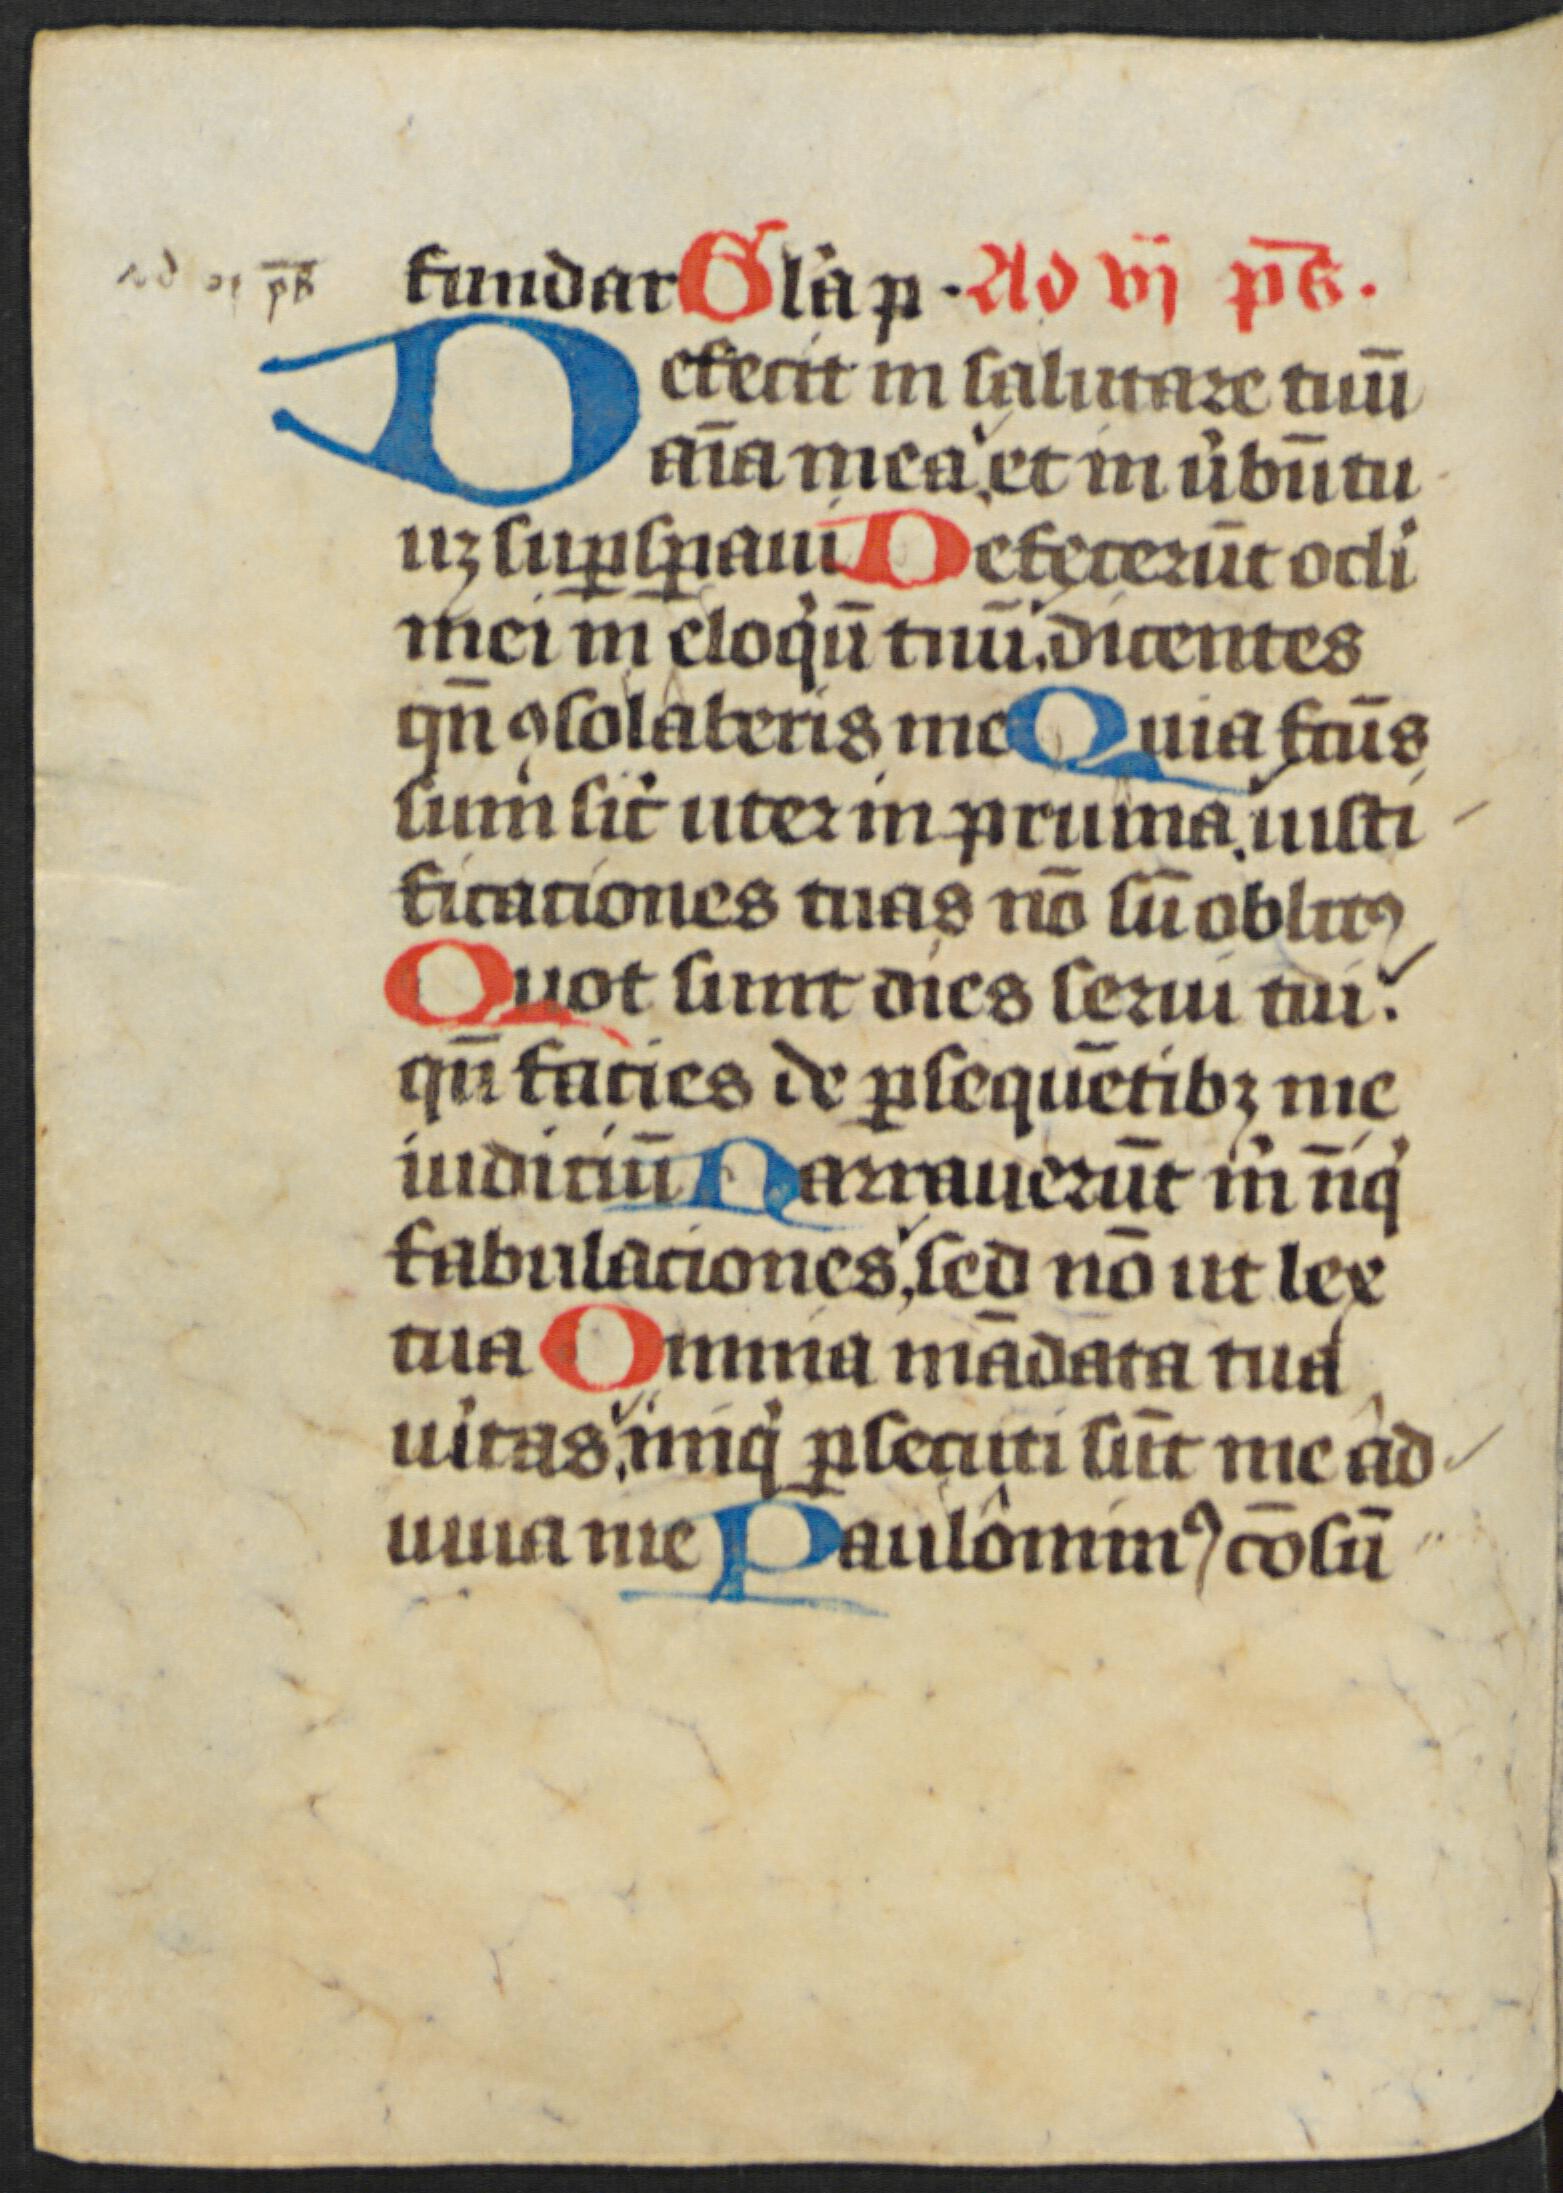 fundar Gl'a p · Ad vj ps̄.
Defecit in salutare tuū
aīa mea, et in ŭbū tu
uȝ suꝑsꝑaui Defecerūt ocli
mei in eloqⁱū tuū, dicentes
qn̄ ꝯsolaberis me Quia fctūs
sum sic̄ uter in pruina, iusti
ficationes tuas nō sū oblitꝰ
Quot sunt dies serui tui.
qn̄ facies de ꝑsequētibȝ me
iudiciū Narrauerūt m̄ inⁱqⁱ
fabulationes, sed nō ut lex
tua Omnia mādata tua
uⁱtas, iniqⁱ ꝑsecuti sūt me ad
iuua me Paulominꝰ cōsū